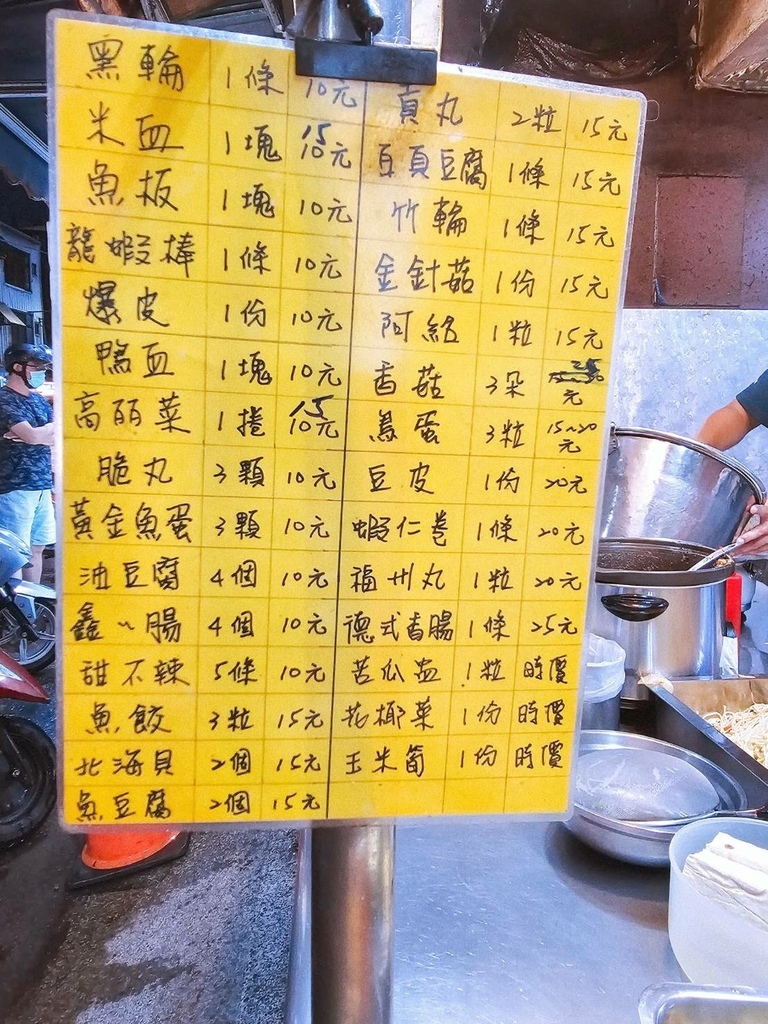 黑輪 1條 10元
米血 1塊 15 10元
魚板 1塊 10元
龍蝦棒 1條 10元
爆皮 1份 10元
鴨血 1塊 10元
高麗菜 1捲 15 10元
脆丸 3顆 10元
黃金魚蛋 3顆 10元
油豆腐 4個 10元
鑫~腸 4個 10元
甜不辣 5條 10元
魚餃 3粒 15元
北海貝 2個 15元
魚豆腐 2個 15元
貢丸 2粒 15元
百頁豆腐 1條 15元
竹輪 1條 15元
金針菇 1份 15元
阿給 1粒 15元
香菇 3朵 25 元
鳥蛋 3粒 15~20元
豆皮 1份 20元
蝦仁卷 1條 20元
福州丸 1粒 20元
德式香腸 1條 25元
苦瓜盅 1粒 時價
花椰菜 1份 時價
玉米筍 1份 時價